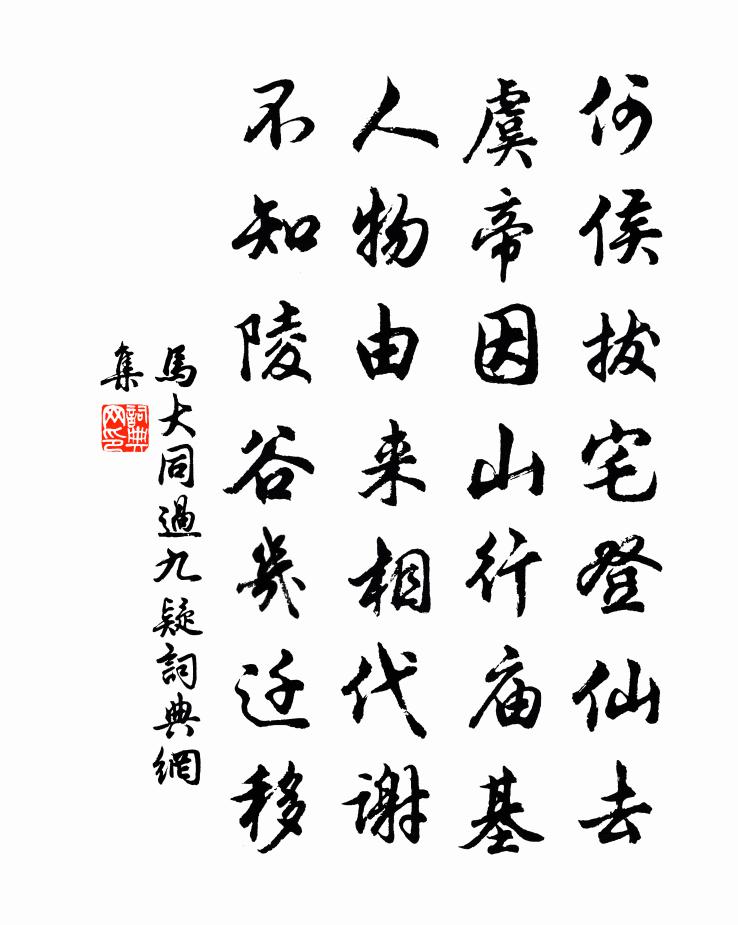 何侯拔宅登仙去
虞帝因山行庙基
人物由来相代谢
不知陵谷几迁移
馬大同過九疑詞典網
集
詞典
网印